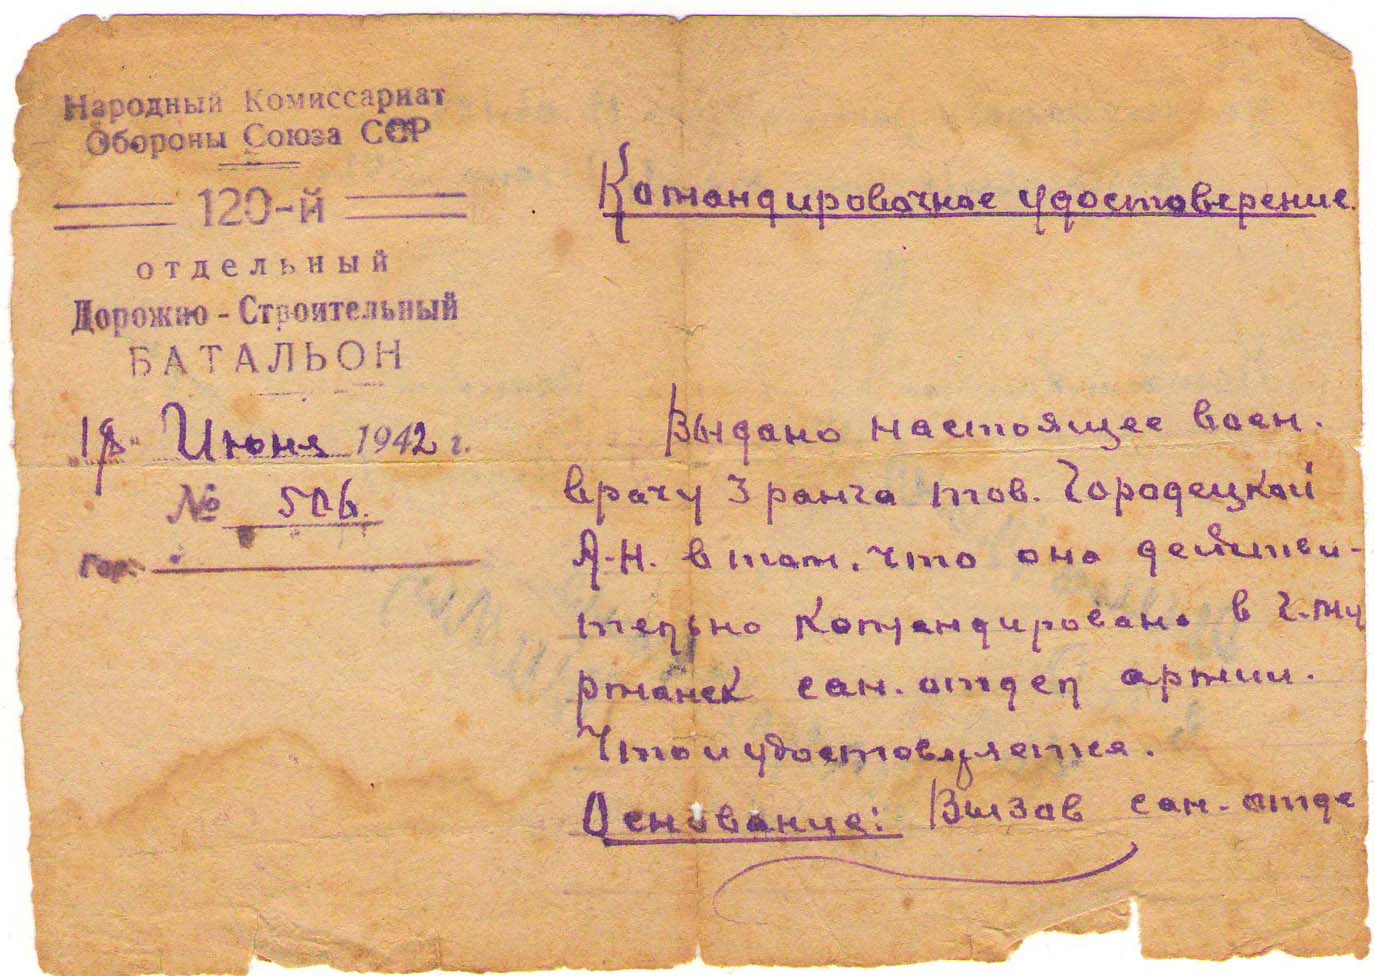 Народный Комиссариат
Обороны Союза ССР
120-й
отдельный
Дорожно-Строительный
БАТАЛЬОН
Июня 1942 г.
№ 506.
Гор.
Командировочное удостоверение.
Выдано настоящее воен.
врачу 3 ранга тов. Городецкой
А.Н. в том, что она действи-
тельно командирована в г. Му
рманск сан. отдел армии.
Что и удостовряется.
Основание: Вызов сан. отде